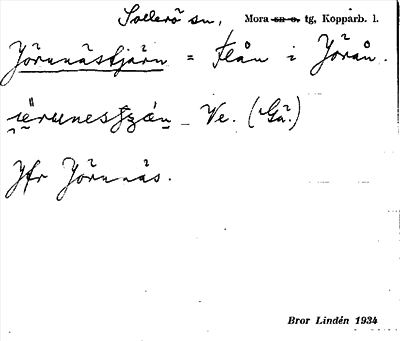 Sollerö sn, Mora sn o. tg, Kopparb. l.
Jörunästjärn = flån i Jörån.
Ve. (Gä.)
Jfr Jörunäs.
Bror Lindén 1934